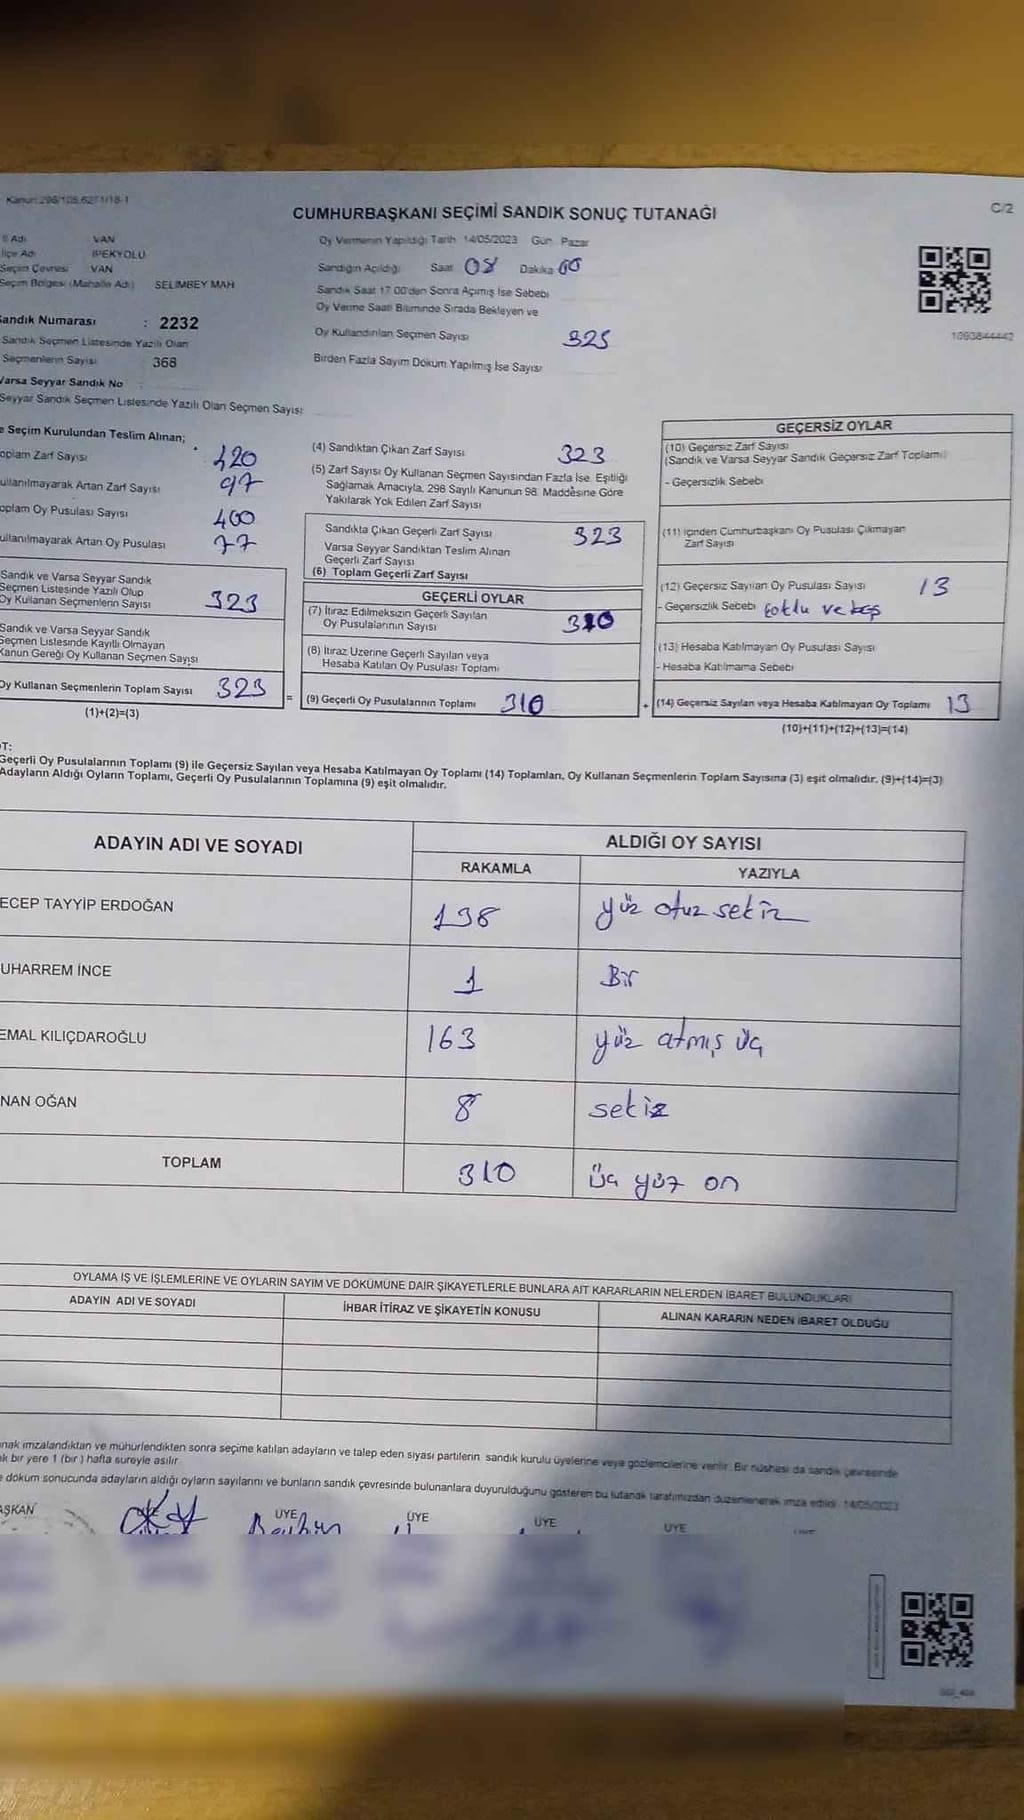 Kanun: 298/105,6271/18-1
CUMHURBAŞKANI SEÇİMİ SANDIK SONUÇ TUTANAĞI
C/2
İl Adı VAN
İlçe Adı İPEKYOLU
Seçim Çevresi VAN
Seçim Bölgesi (Mahalle Adı) SELİMBEY MAH
Sandık Numarası : 2232
Sandık Seçmen Listesinde Yazılı Olan
Seçmenlerin Sayısı 368
Varsa Seyyar Sandık No
Seyyar Sandık Seçmen Listesinde Yazılı Olan Seçmen Sayısı
Oy Vermenin Yapıldığı Tarih 14/05/2023 Gün Pazar
Sandığın Açıldığı Saat 08 Dakika 00
Sandık Saat 17.00'den Sonra Açımış İse Sebebi
Oy Verme Saati Bitiminde Sırada Bekleyen ve
Oy Kullandırılan Seçmen Sayısı 325
Birden Fazla Sayım Döküm Yapılmış İse Sayısı
1093844442
e Seçim Kurulundan Teslim Alınan;
oplam Zarf Sayısı 420
ullanılmayarak Artan Zarf Sayısı 97
oplam Oy Pusulası Sayısı 400
ullanılmayarak Artan Oy Pusulası 77
Sandık ve Varsa Seyyar Sandık
Seçmen Listesinde Yazılı Olup
Oy Kullanan Seçmenlerin Sayısı 323
Sandık ve Varsa Seyyar Sandık
Seçmen Listesinde Kayıtlı Olmayan
Kanun Gereği Oy Kullanan Seçmen Sayısı
Oy Kullanan Seçmenlerin Toplam Sayısı 323 =
(1)+(2)=(3)
(4) Sandıktan Çıkan Zarf Sayısı 323
(5) Zarf Sayısı Oy Kullanan Seçmen Sayısından Fazla İse, Eşitliği
Sağlamak Amacıyla, 298 Sayılı Kanunun 98. Maddesine Göre
Yakılarak Yok Edilen Zarf Sayısı
Sandıkta Çıkan Geçerli Zarf Sayısı 323
Varsa Seyyar Sandıktan Teslim Alınan
Geçerli Zarf Sayısı
(6) Toplam Geçerli Zarf Sayısı
GEÇERLİ OYLAR
(7) İtiraz Edilmeksizin Geçerli Sayılan
Oy Pusulalarının Sayısı 310
(8) İtiraz Üzerine Geçerli Sayılan veya
Hesaba Katılan Oy Pusulası Toplamı
(9) Geçerli Oy Pusulalarının Toplamı 310 +
GEÇERSİZ OYLAR
(10) Geçersiz Zarf Sayısı
(Sandık ve Varsa Seyyar Sandık Geçersiz Zarf Toplamı)
- Geçersizlik Sebebi
(11) İçinden Cumhurbaşkanı Oy Pusulası Çıkmayan
Zarf Sayısı
(12) Geçersiz Sayılan Oy Pusulası Sayısı 13
- Geçersizlik Sebebi
(13) Hesaba Katılmayan Oy Pusulası Sayısı
- Hesaba Katılmama Sebebi
(14) Geçersiz Sayılan veya Hesaba Katılmayan Oy Toplamı 13
(10)+(11)+(12)+(13)=(14)
OT:
Geçerli Oy Pusulalarının Toplamı (9) ile Geçersiz Sayılan veya Hesaba Katılmayan Oy Toplamı (14) Toplamları, Oy Kullanan Seçmenlerin Toplam Sayısına (3) eşit olmalıdır. (9)+(14)=(3)
Adayların Aldığı Oyların Toplamı, Geçerli Oy Pusulalarının Toplamına (9) eşit olmalıdır.
ADAYIN ADI VE SOYADI ALDIĞI OY SAYISI
RAKAMLA YAZIYLA
ECEP TAYYİP ERDOĞAN 138 yüz otuz sekiz
UHARREM İNCE 1 Bir
EMAL KILIÇDAROĞLU 163 yüz atmış üç
NAN OĞAN 8 sekiz
TOPLAM 310 üç yüz on
OYLAMA İŞ VE İŞLEMLERİNE VE OYLARIN SAYIM VE DÖKÜMÜNE DAİR ŞİKAYETLERLE BUNLARA AİT KARARLARIN NELERDEN İBARET BULUNDUKLARI
ADAYIN ADI VE SOYADI İHBAR İTİRAZ VE ŞİKAYETİN KONUSU ALINAN KARARIN NEDEN İBARET OLDUĞU
anak imzalandıktan ve mühürlendikten sonra seçime katılan adayların ve talep eden siyasi partilerin sandık kurulu üyelerine veya gözlemcilerine verilir. Bir nüshası da sandık çevresinde
ek bir yere 1 (bir) hafta süreyle asılır.
e döküm sonucunda adayların aldığı oyların sayılarını ve bunların sandık çevresinde bulunanlara duyurulduğunu gösteren bu tutanak tarafımızdan düzenlenerek imza edildi. 14/05/2023
AŞKAN ÜYE ÜYE ÜYE ÜYE